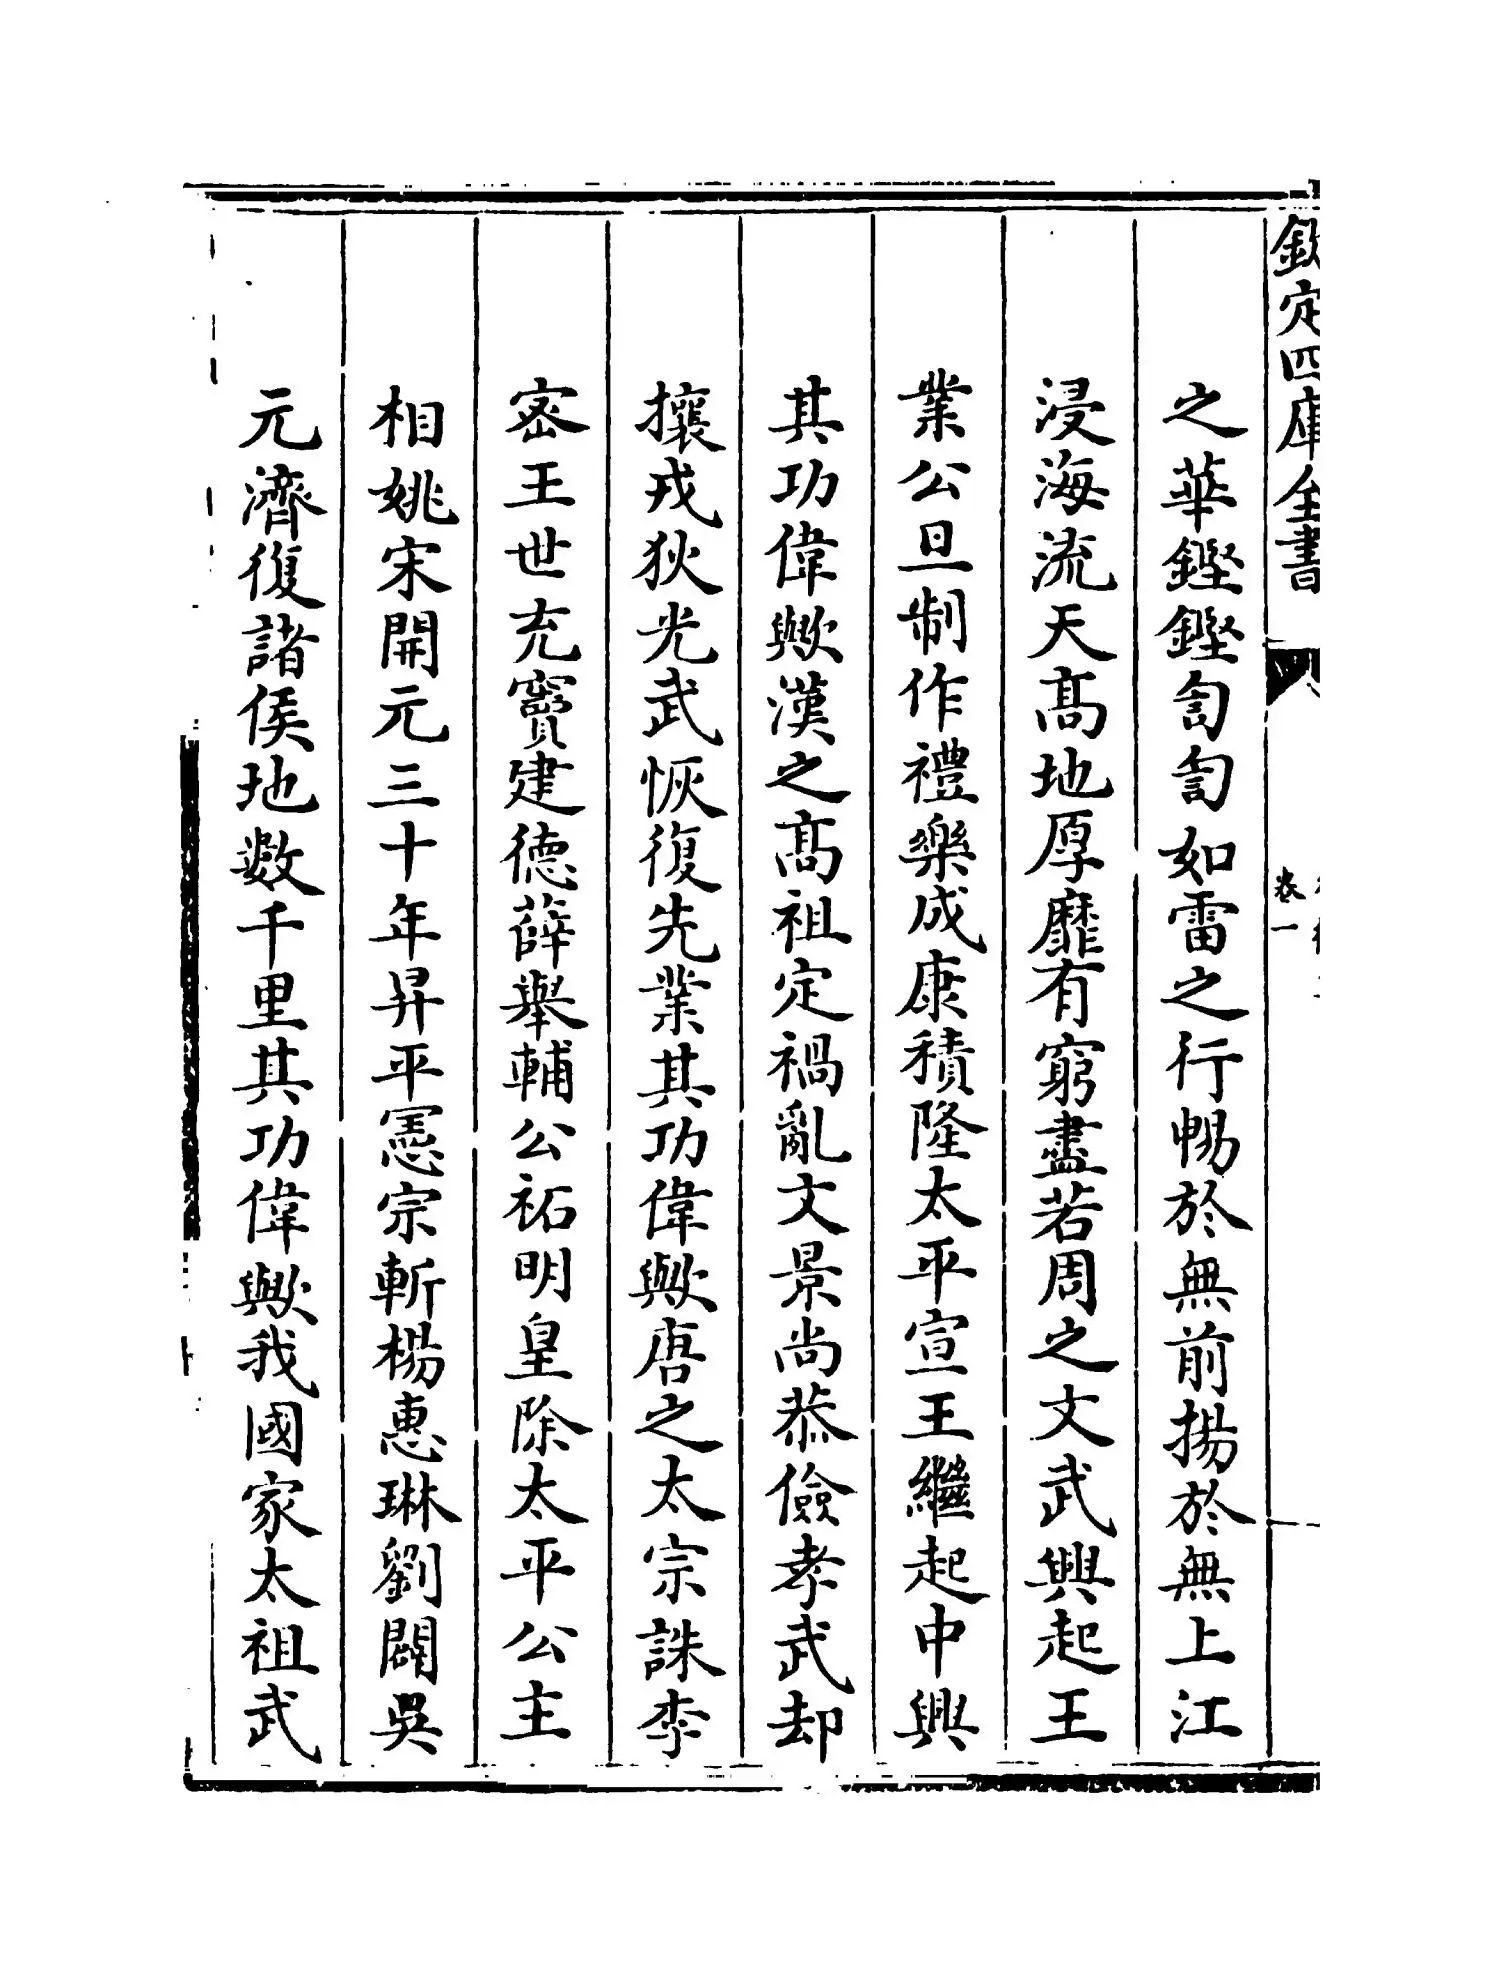 欽定四庫全書
卷一
之華鏗鏗訇訇如雷之行暢於無前揚於無上江
浸海流天髙地厚靡有窮盡若周之文武興起王
業公旦制作禮樂成康積隆太平宣王繼起中興
其功偉歟漢之髙祖定禍亂文景尚恭儉孝武却
攘戎狄光武恢復先業其功偉歟唐之太宗誅李
宻王世充竇建德薛舉輔公祏明皇除太平公主
相姚宋開元三十年昇平憲宗斬楊惠琳劉闢吳
元濟復諸侯地數千里其功偉歟我國家太祖武